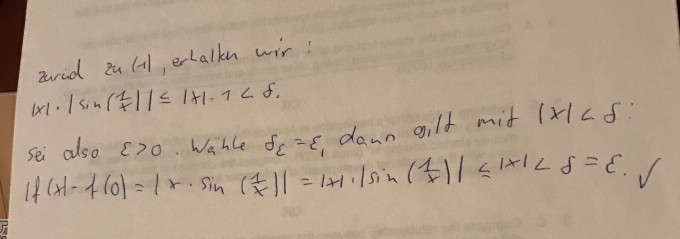 zurück zu (1), erhalten wir:
|x|·|sin(1/x)| ≤ |x|·1 < δ.
Sei also ε>0. Wähle δ_ε = ε, dann gilt mit |x| < δ:
|f(x)-f(0)| = |x·sin(1/x)| = |x|·|sin(1/x)| ≤ |x| < δ = ε. ✓